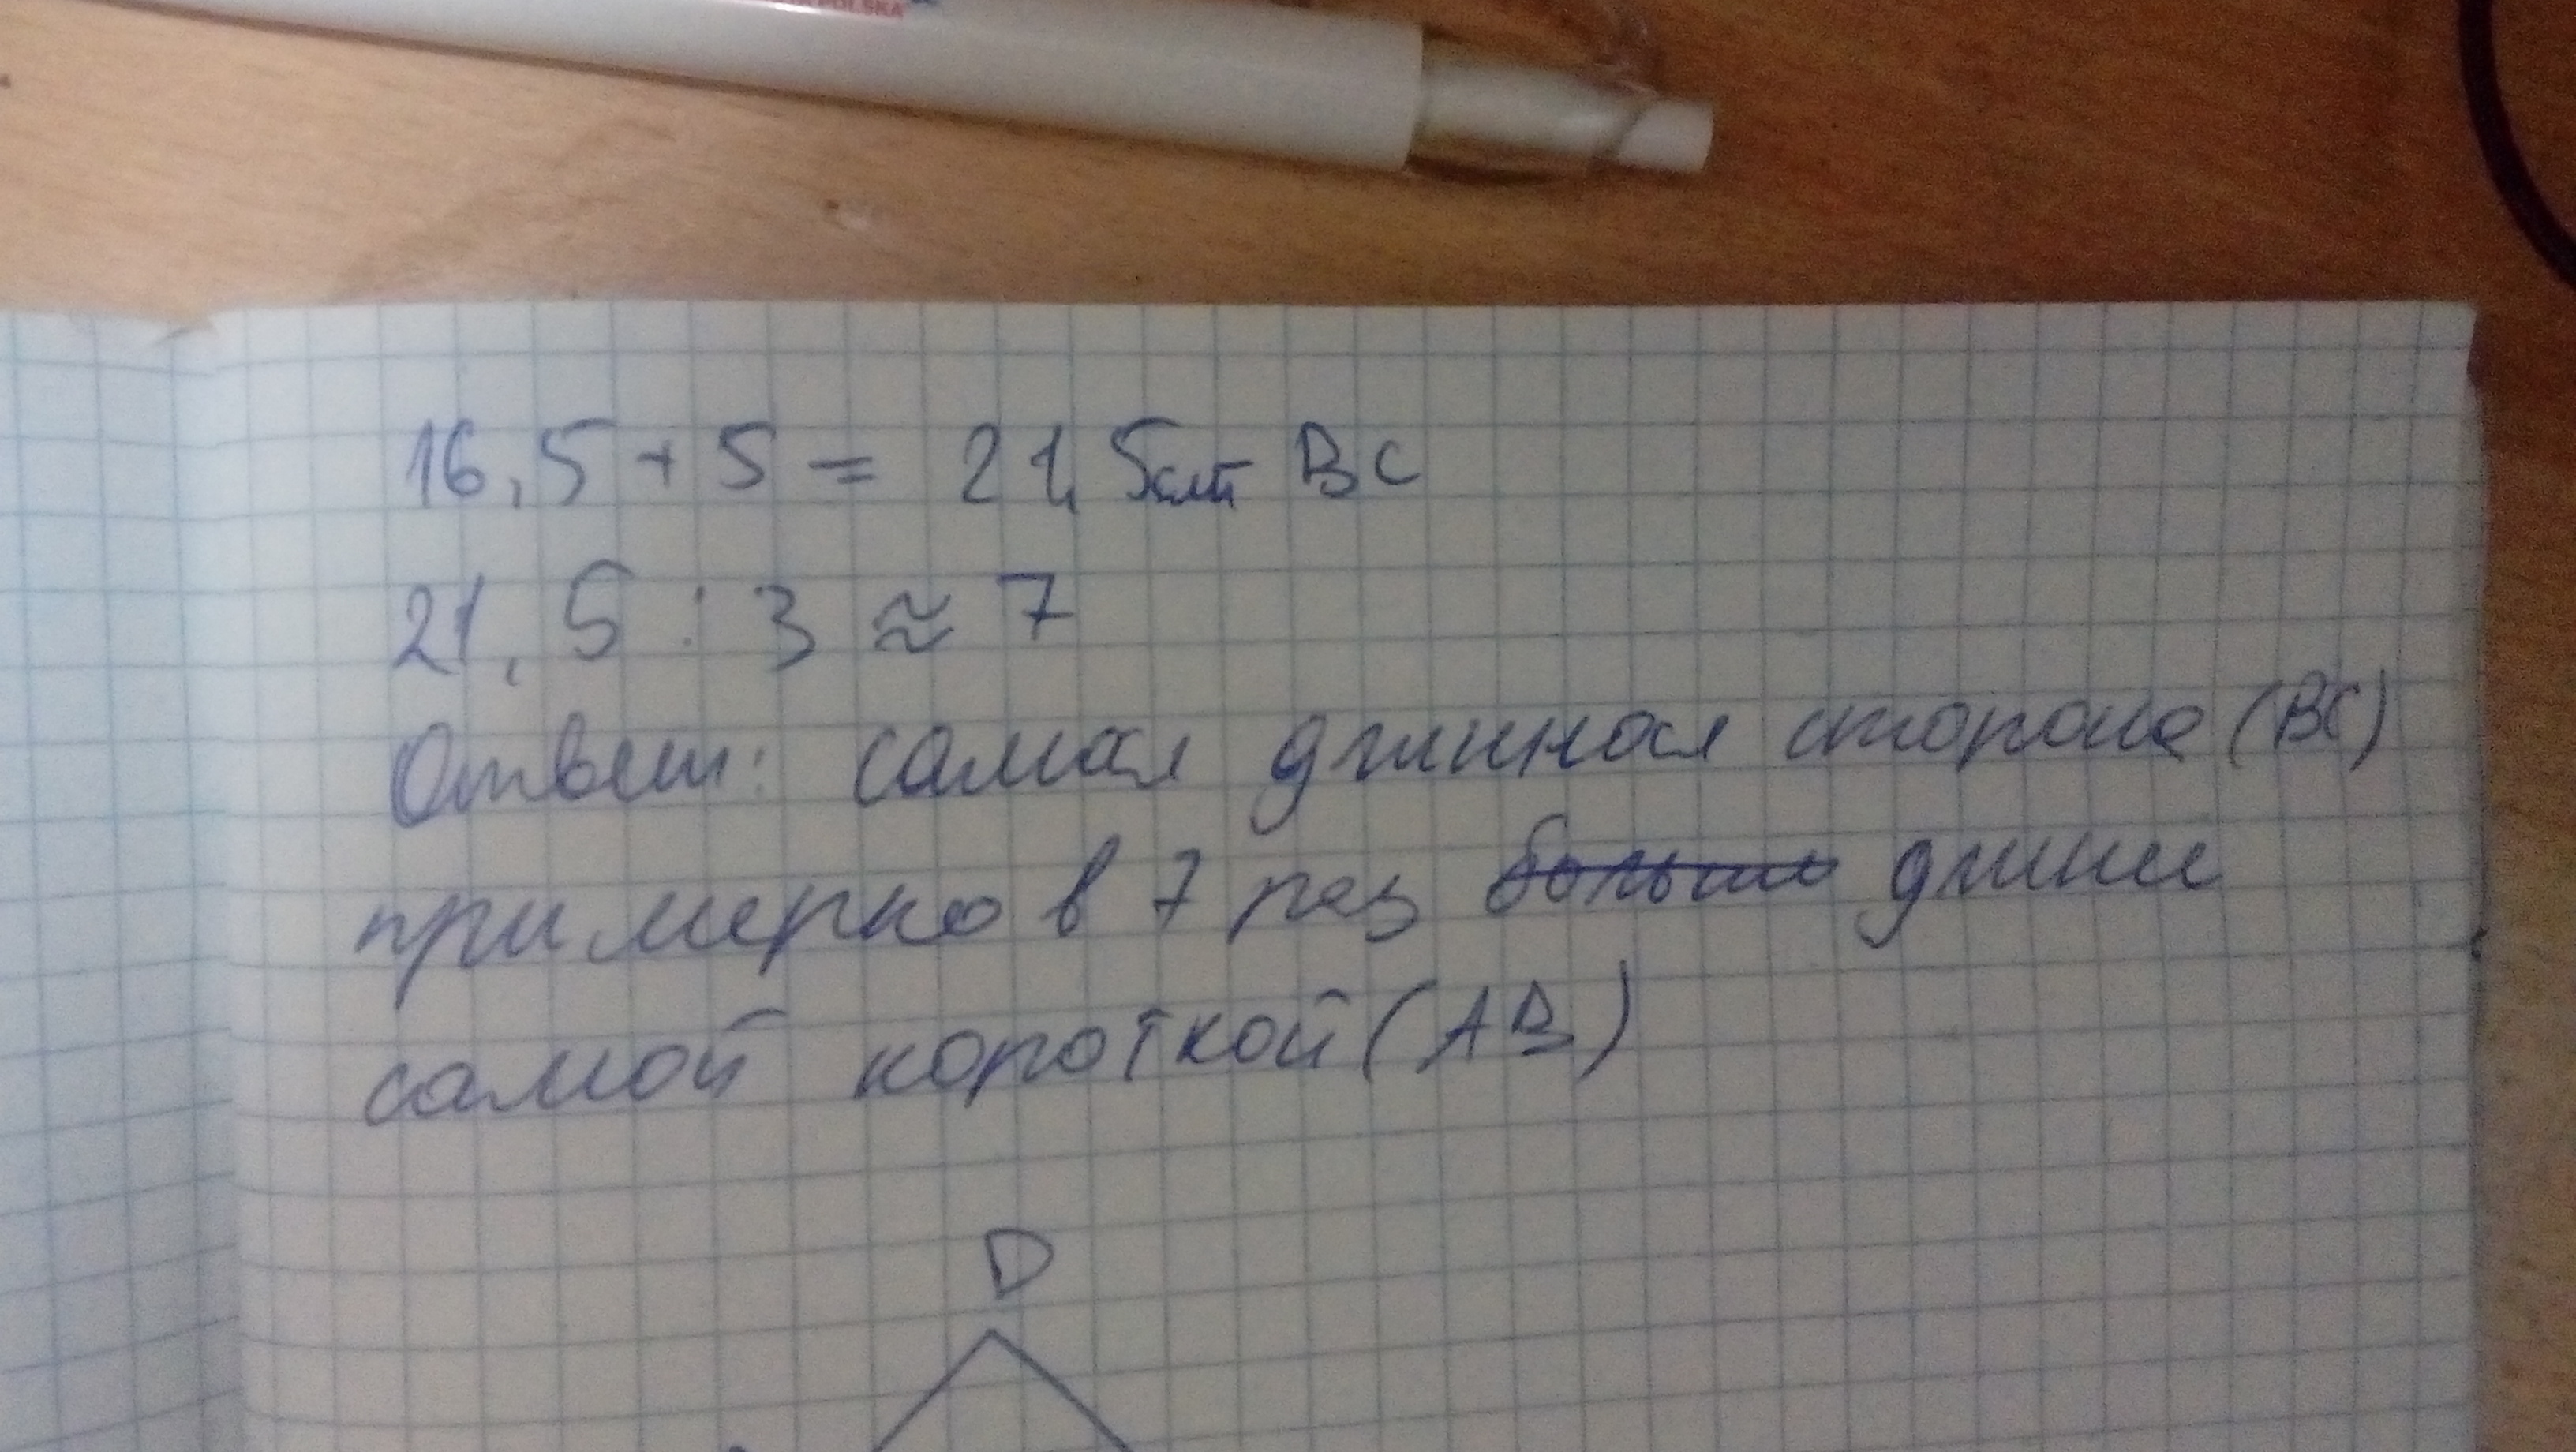 POLSKA
16,5 + 5 = 21,5см BC
21,5 : 3 ≈ 7
Ответ: самая длинная сторона (BC)
примерно в 7 раз больше длине
самой короткой (AB)
D